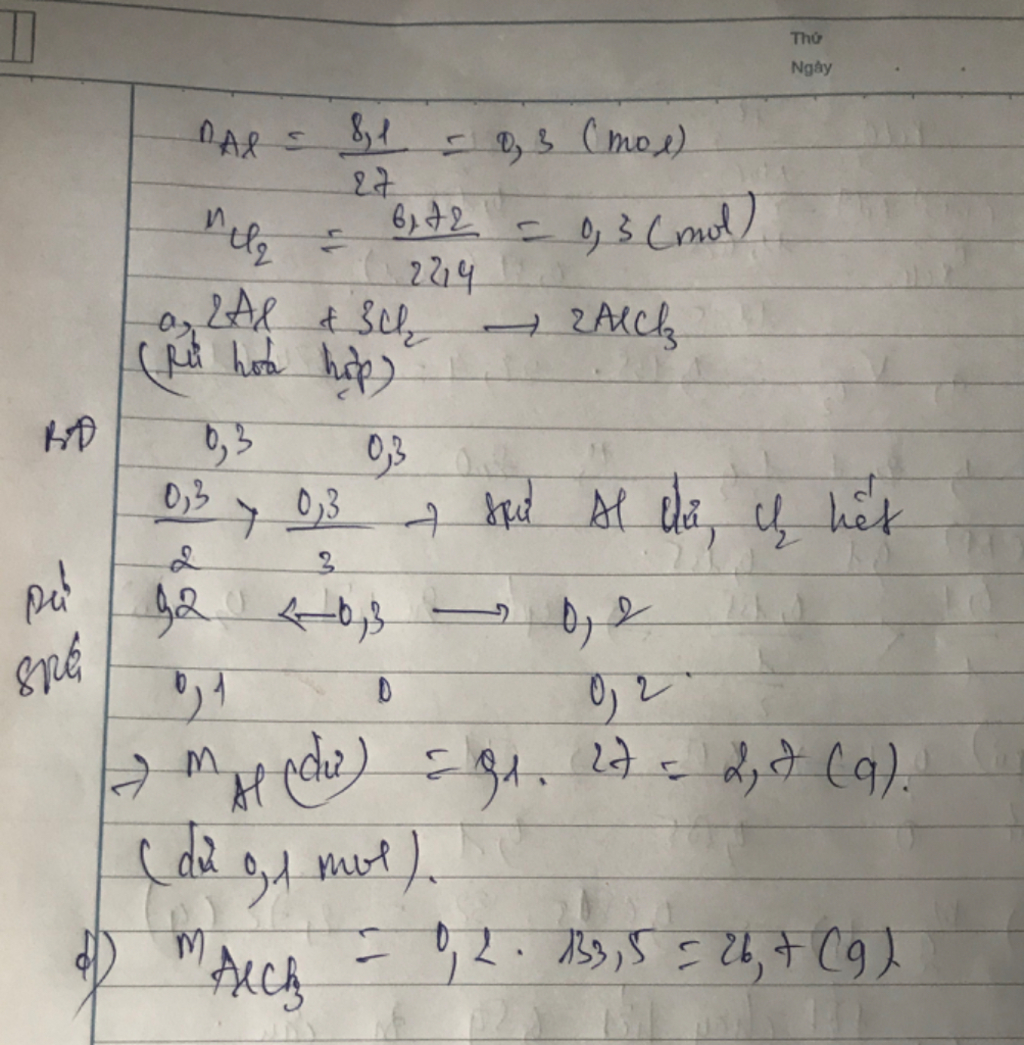 Thứ
Ngày
nAl = 8,1/27 = 0,3 (mol)
nCl2 = 6,72/22,4 = 0,3 (mol)
a, 2Al + 3Cl2 → 2AlCl3
(Pứ hoá hợp)
BĐ 0,3 0,3
0,3/2 > 0,3/3 → spứ Al dư, Cl2 hết
pứ 0,2 ← 0,3 → 0,2
spứ 0,1 0 0,2
→ mAl (dư) = 0,1 . 27 = 2,7 (g).
(dư 0,1 mol).
mAlCl3 = 0,2 . 133,5 = 26,7 (g)